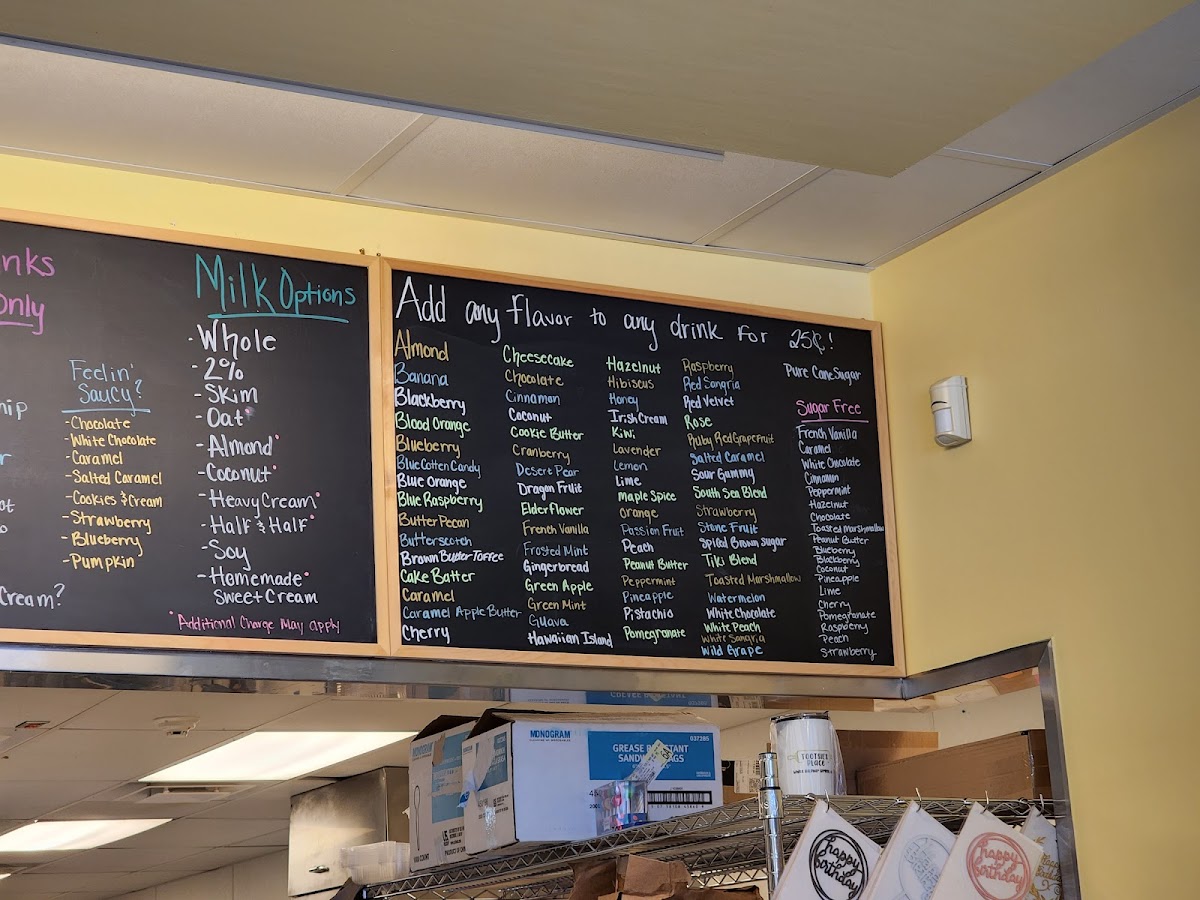 nks
only
hip
r
ot
o
Cream?
Feelin'
Saucy?
- Chocolate
- White Chocolate
- Caramel
- Salted Caramel
- Cookies & Cream
- Strawberry
- Blueberry
- Pumpkin
Milk Options
- Whole
- 2%
- Skim
- Oat*
- Almond*
- Coconut*
- Heavy Cream*
- Half & Half*
- Soy
- Homemade*
Sweet Cream
*Additional Charge May apply
Add any flavor to any drink for 25¢!
Almond
Banana
Blackberry
Blood Orange
Blueberry
Blue Cotten Candy
Blue Orange
Blue Raspberry
Butter Pecan
Butterscotch
Brown Butter Toffee
Cake Batter
Caramel
Caramel Apple Butter
Cherry
Cheesecake
Chocolate
Cinnamon
Coconut
Cookie Butter
Cranberry
Desert Pear
Dragon Fruit
Elderflower
French Vanilla
Frosted Mint
Gingerbread
Green Apple
Green Mint
Guava
Hawaiian Island
Hazelnut
Hibiscus
Honey
Irish Cream
Kiwi
Lavender
Lemon
Lime
Maple Spice
Orange
Passion Fruit
Peach
Peanut Butter
Peppermint
Pineapple
Pistachio
Pomegranate
Raspberry
Red Sangria
Red Velvet
Rose
Ruby Red Grapefruit
Salted Caramel
Sour Gummy
South Sea Blend
Strawberry
Stone Fruit
Spiced Brown Sugar
Tiki Blend
Toasted Marshmallow
Watermelon
White Chocolate
White Peach
White Sangria
Wild Grape
Pure Cane Sugar
Sugar Free
French Vanilla
Caramel
White Chocolate
Cinnamon
Peppermint
Hazelnut
Chocolate
Toasted Marshmallow
Peanut Butter
Blueberry
Blackberry
Coconut
Pineapple
Lime
Cherry
Pomegranate
Raspberry
Peach
Strawberry
MONOGRAM
MONOGRAM
037285
GREASE
TOOTSIE'S
PLACE
happy
birthday
happy
birthday